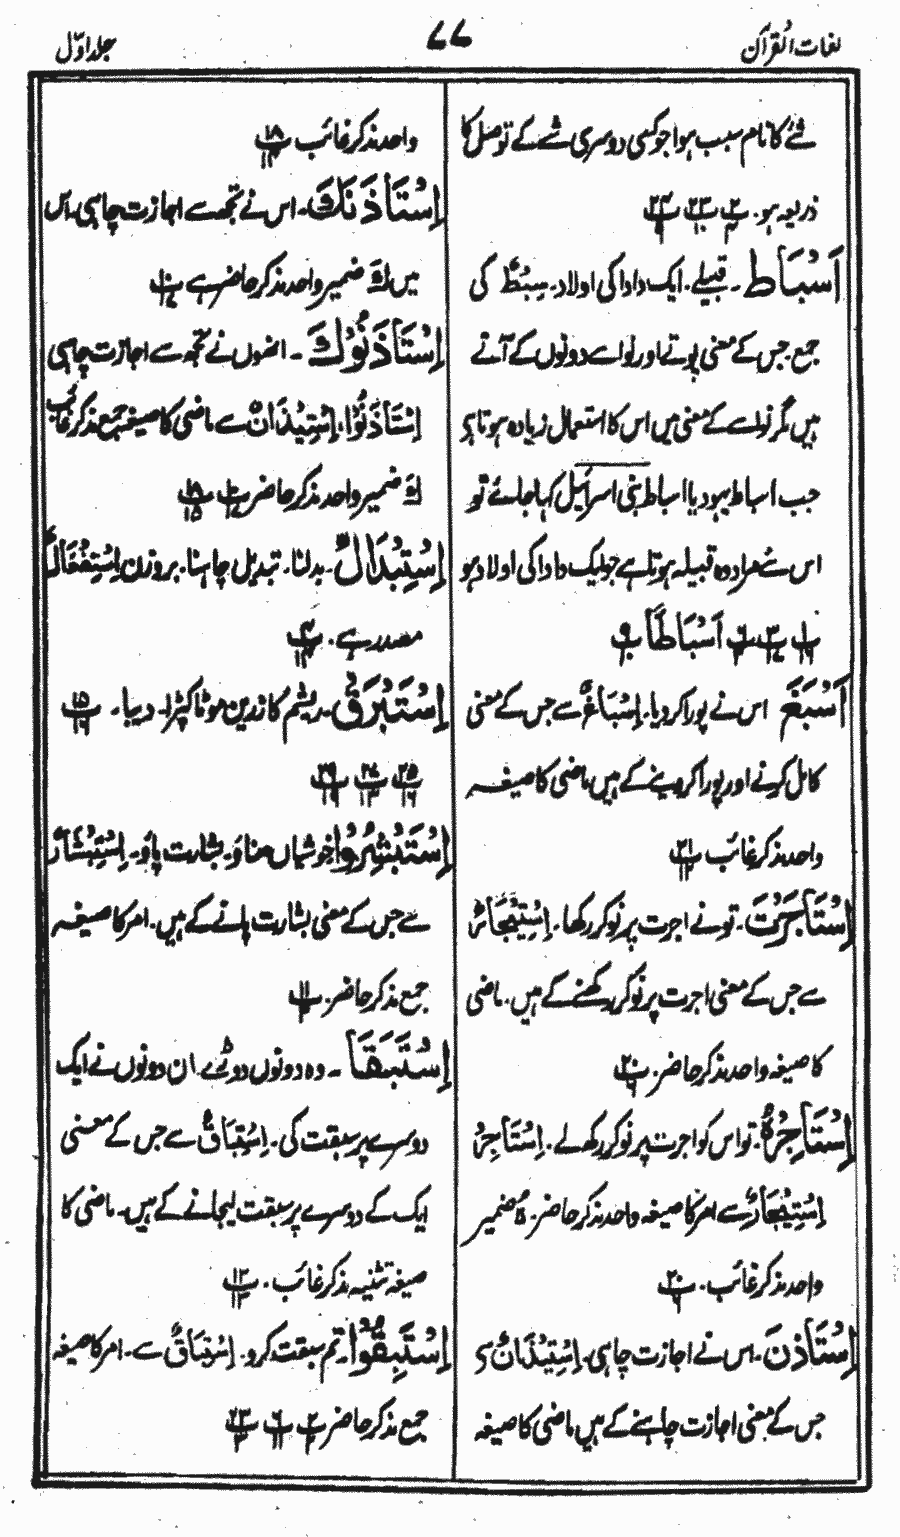 لغات القرآن
۷۷
جلد اوّل
شئے کا نام سبب ہوا جو کسی دوسری شے کے توصل کا
ذریعہ ہو۔
اَسْبَاط ۔ قبیلے۔ ایک دادا کی اولاد۔ سِبْطٌ کی
جمع جس کے معنی پوتے اور نواسے دونوں کے آتے
ہیں مگر نواسے کے معنی میں اس کا استعمال زیادہ ہوتا ہے
جب اسباط یہود یا اسباط بنی اسرائیل کہا جائے تو
اس سے مراد وہ قبیلہ ہوتا ہے جو ایک دادا کی اولاد ہو
اَسْبَاطًا
اَسْبَغَ اس نے پورا کر دیا۔ اِسْبَاغٌ سے جس کے معنی
کامل کرنے اور پورا کر دینے کے ہیں ماضی کا صیغہ
واحد مذکر غائب
اِسْتَاْجَرْتَ ۔ تو نے اجرت پر نوکر رکھا۔ اِسْتِیْجَارٌ
سے جس کے معنی اجرت پر نوکر رکھنے کے ہیں۔ ماضی
کا صیغہ واحد مذکر حاضر۔
اِسْتَاْجِرْہُ ۔ تو اس کو اجرت پر نوکر رکھ لے۔ اِسْتَاْجِرْ
اِسْتِیْجَارٌ سے امر کا صیغہ واحد مذکر حاضر۔ ہُ ضمیر
واحد مذکر غائب۔
اِسْتَاْذَنَ ۔ اس نے اجازت چاہی۔ اِسْتِیْذَانٌ سے
جس کے معنی اجازت چاہنے کے ہیں ماضی کا صیغہ
واحد مذکر غائب
اِسْتَاْذَنَكَ ۔ اس نے تجھ سے اجازت چاہی۔ اس
میں كَ ضمیر واحد مذکر حاضر ہے
اِسْتَاْذَنُوْكَ ۔ انھوں نے تجھ سے اجازت چاہی
اِسْتَاْذَنُوْا، اِسْتِیْذَانٌ سے ماضی کا صیغہ جمع مذکر غائب
كَ ضمیر واحد مذکر حاضر
اِسْتِبْدَالٌ ۔ بدلنا۔ تبدیل چاہنا۔ بروزن اِسْتِفْعَالٌ
مصدر ہے۔
اِسْتَبْرَقٍ ۔ ریشم کا زرین موٹا کپڑا۔ دیبا۔
اِسْتَبْشِرُوْا خوشیاں مناؤ۔ بشارت پاؤ۔ اِسْتِبْشَارٌ
سے جس کے معنی بشارت پانے کے ہیں۔ امر کا صیغہ
جمع مذکر حاضر۔
اِسْتَبَقَا ۔ وہ دونوں دوڑے۔ ان دونوں نے ایک
دوسرے پر سبقت کی۔ اِسْتِبَاقٌ سے جس کے معنی
ایک کے دوسرے پر سبقت لیجانے کے ہیں۔ ماضی کا
صیغہ تثنیہ مذکر غائب۔
اِسْتَبِقُوْا ۔ تم سبقت کرو۔ اِسْتِبَاقٌ سے ۔ امر کا صیغہ
جمع مذکر حاضر